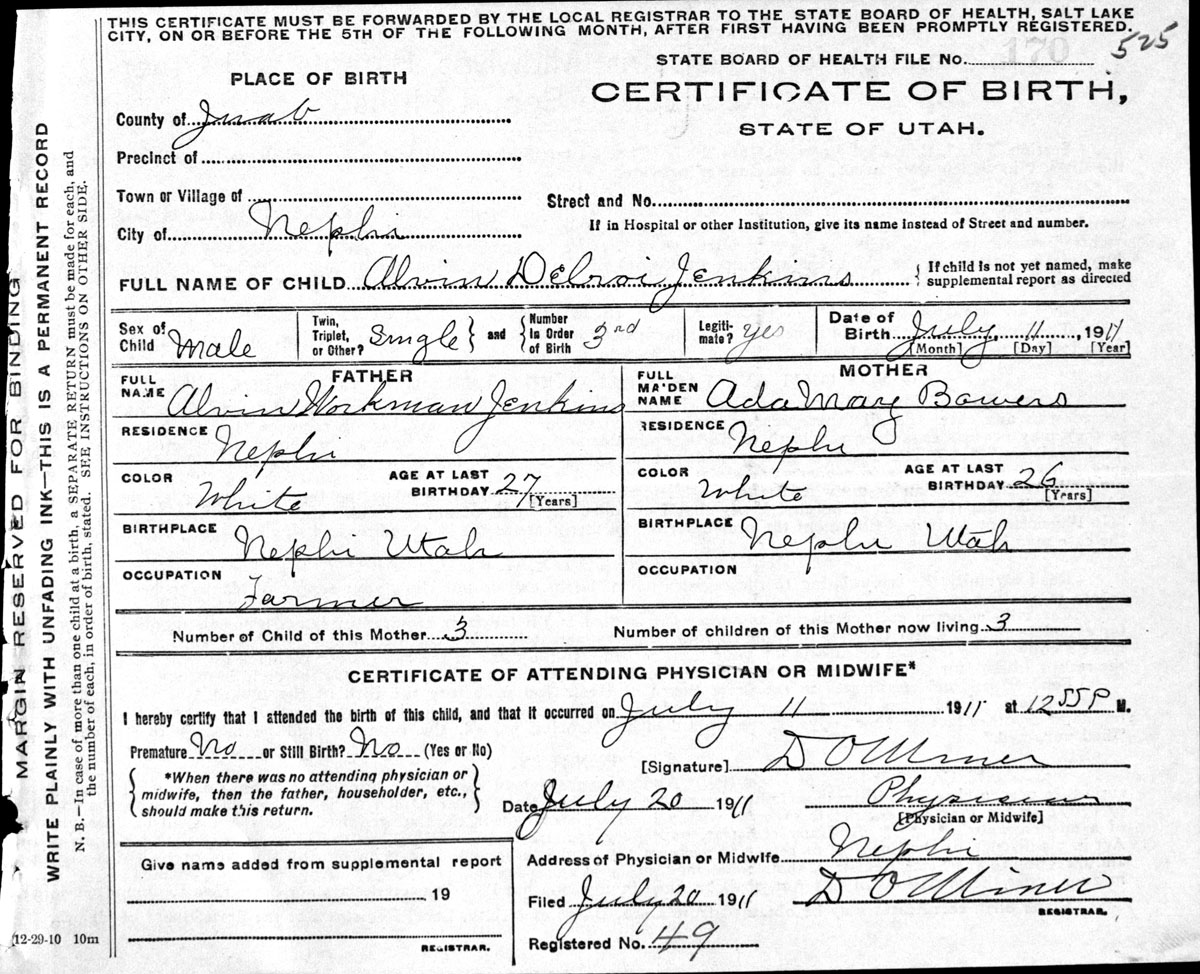 THIS CERTIFICATE MUST BE FORWARDED BY THE LOCAL REGISTRAR TO THE STATE BOARD OF HEALTH, SALT LAKE
CITY, ON OR BEFORE THE 5TH OF THE FOLLOWING MONTH, AFTER FIRST HAVING BEEN PROMPTLY REGISTERED.
525
STATE BOARD OF HEALTH FILE No. 170
PLACE OF BIRTH
CERTIFICATE OF BIRTH,
STATE OF UTAH.
County of Juab
Precinct of
Town or Village of
Street and No.
City of Nephi
If in Hospital or other Institution, give its name instead of Street and number.
FULL NAME OF CHILD Alvin Delroi Jenkins
{ If child is not yet named, make
supplemental report as directed
Sex of Child Male
Twin, Triplet, or Other? Single } and { Number in Order of Birth 3rd
Legiti-mate? Yes
Date of Birth July 11, 1911
[Month] [Day] [Year]
FATHER
FULL NAME Alvin Workman Jenkins
RESIDENCE Nephi
COLOR White
AGE AT LAST BIRTHDAY 27
[Years]
BIRTHPLACE Nephi Utah
OCCUPATION Farmer
MOTHER
FULL MAIDEN NAME Ada Mary Bowers
RESIDENCE Nephi
COLOR White
AGE AT LAST BIRTHDAY 26
[Years]
BIRTHPLACE Nephi Utah
OCCUPATION
Number of Child of this Mother 3 Number of children of this Mother now living 3
CERTIFICATE OF ATTENDING PHYSICIAN OR MIDWIFE*
I hereby certify that I attended the birth of this child, and that it occurred on July 11 1911 at 12 55 P M.
Premature No or Still Birth? No (Yes or No)
[Signature] D O Miner
{ *When there was no attending physician or
midwife, then the father, householder, etc.,
should make this return. }
Date July 20 1911 Physician
[Physician or Midwife]
Address of Physician or Midwife Nephi
Give name added from supplemental report
19
REGISTRAR.
Filed July 20 1911 D O Miner
REGISTRAR.
Registered No. 49
12-29-10 10m
MARGIN RESERVED FOR BINDING
WRITE PLAINLY WITH UNFADING INK—THIS IS A PERMANENT RECORD
N. B.—In case of more than one child at a birth, a SEPARATE RETURN must be made for each, and
the number of each, in order of birth, stated. SEE INSTRUCTIONS ON OTHER SIDE.